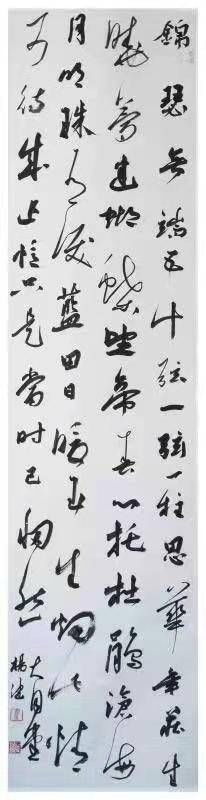 錦瑟無端五十弦一弦一柱思華年莊生
曉夢迷蝴蝶望帝春心托杜鵑滄海
月明珠有淚藍田日暖玉生烟此情
可待成追憶只是當時已惘然